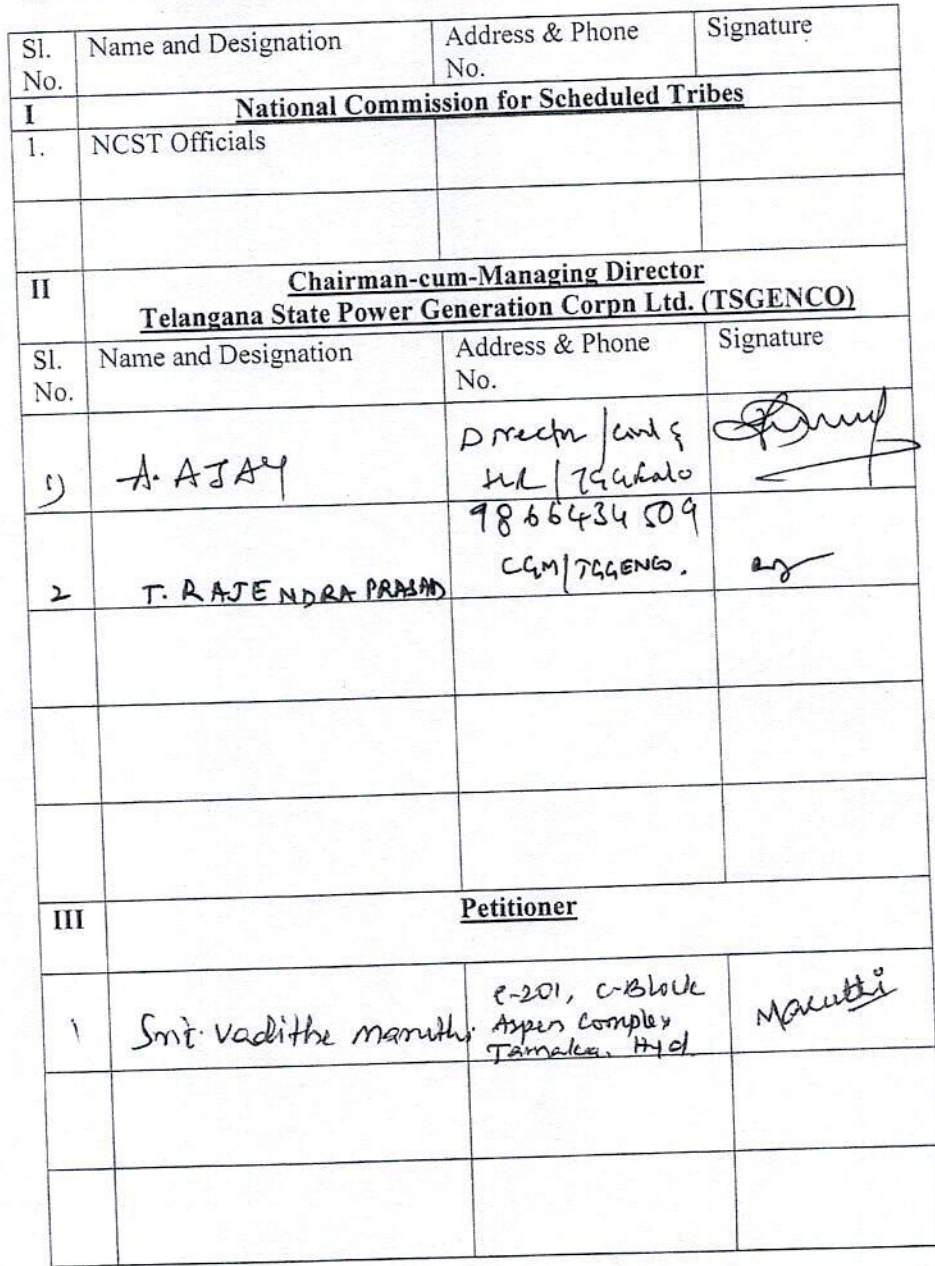 Sl. No. Name and Designation Address & Phone No. Signature
I National Commission for Scheduled Tribes
1. NCST Officials
II Chairman-cum-Managing Director
Telangana State Power Generation Corpn Ltd. (TSGENCO)
Sl. No. Name and Designation Address & Phone No. Signature
1) A. AJAY Director / Civil &
HR /
9866434509
2 T. RAJENDRA PRASAD CGM/TGGENCO.
III Petitioner
1 Smt. Vadithe Maruthi C-201, C-Block
Aspen Complex
Hyd
Maruthi